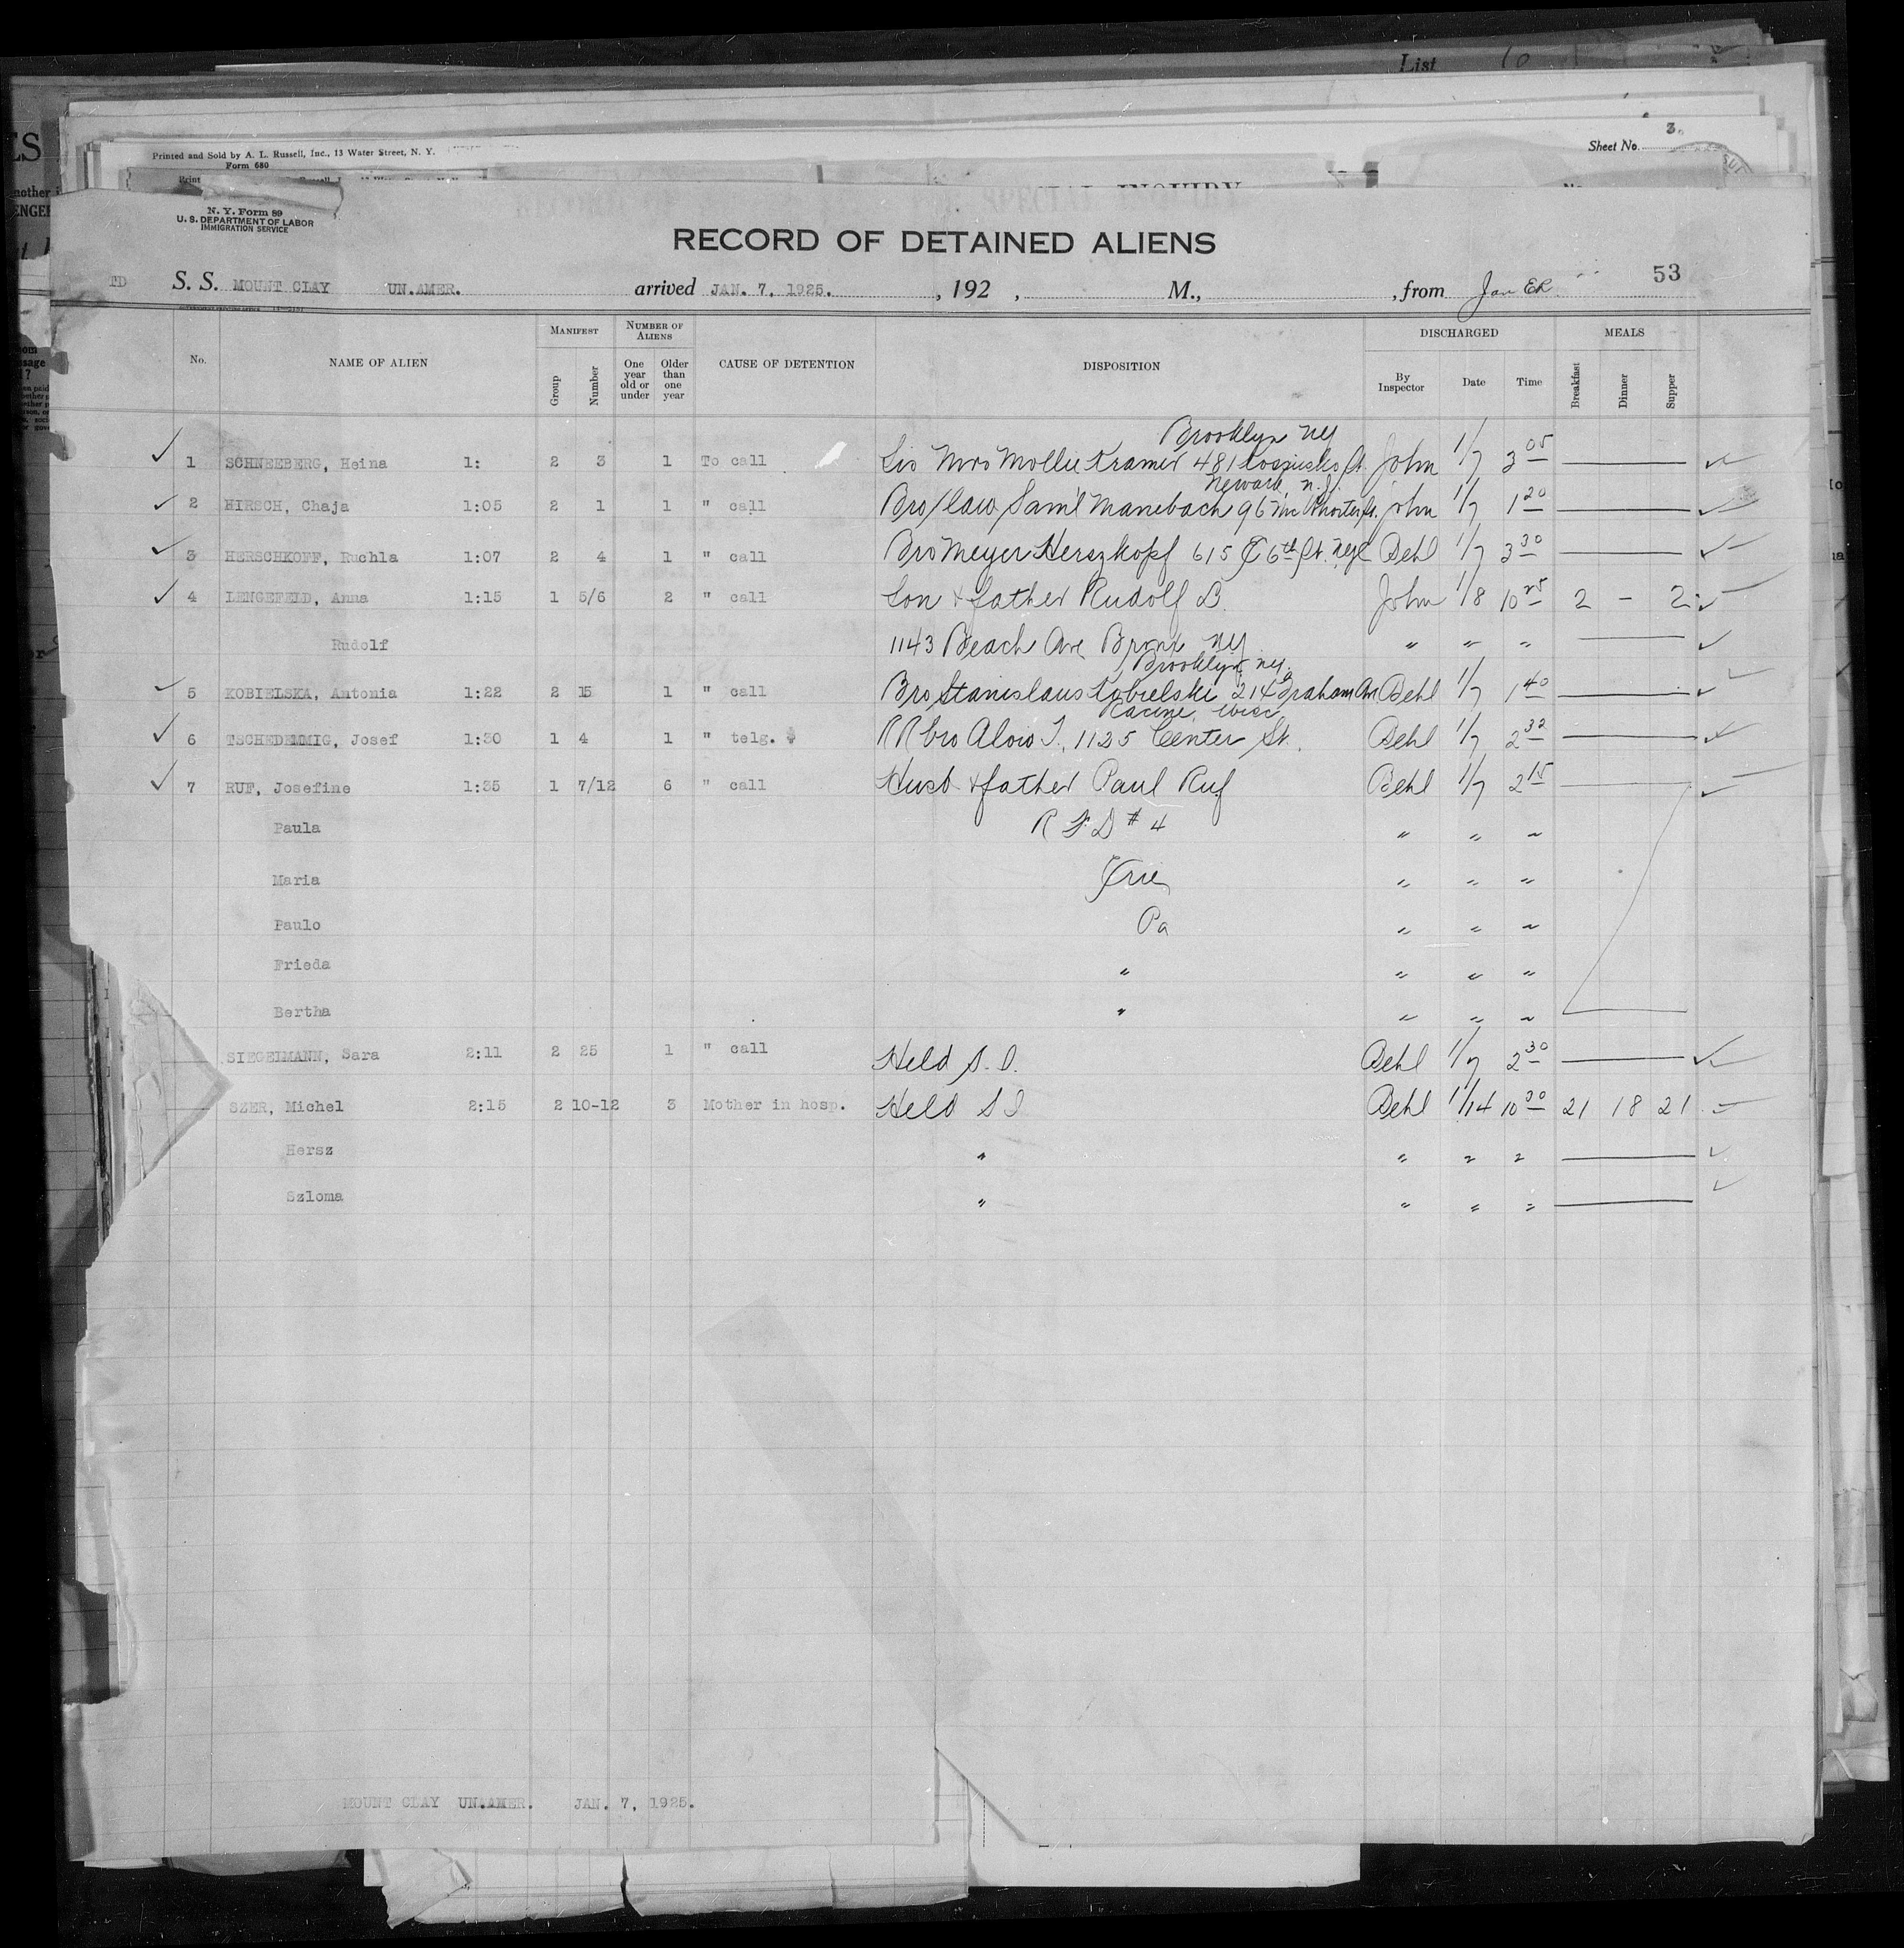 List 10
Printed and Sold by A. L. Russell, Inc., 13 Water Street, N. Y.
Form 680
Sheet No. 3
SPECIAL INQUIRY
N. Y. Form 89
U. S. DEPARTMENT OF LABOR
IMMIGRATION SERVICE
RECORD OF DETAINED ALIENS
TD S. S. MOUNT CLAY UN.AMER. arrived JAN. 7, 1925. , 192 , M., , from Jan ER 53
No. NAME OF ALIEN MANIFEST Group Number NUMBER OF ALIENS One year old or under Older than one year CAUSE OF DETENTION DISPOSITION DISCHARGED By Inspector Date Time MEALS Breakfast Dinner Supper
Brooklyn NY
1 SCHNEEBERG, Heina 1: 2 3 1 To call Sis Mrs Mollie Kramer 481 Kosciusko St. John 1/7 3 05
Newark, N.J.
2 HIRSCH, Chaja 1:05 2 1 1 " call Bro/law Saml Manebach 96 John 1/7 1 20
3 HERSCHKOFF, Ruchla 1:07 2 4 1 " call Bro Meyer Herszkopf 615 E 6th St. NYC Behl 1/7 3 30
4 LENGEFELD, Anna 1:15 1 5/6 2 " call Son & father Rudolf L. John 1/8 10 25 2 - 2
Rudolf 1143 Beach Ave Bronx NY " " "
Brooklyn, NY.
5 KOBIELSKA, Antonia 1:22 2 15 1 " call Bro Stanislaus Kobielski 214 Graham Av Behl 1/7 1 40
Racine, Wisc
6 TSCHEDEMMIG, Josef 1:30 1 4 1 " telg. RR bro Alois T. 1125 Center St. Behl 1/7 2 32
7 RUF, Josefine 1:35 1 7/12 6 " call Husb & father Paul Ruf Behl 1/7 2 15
Paula R F D # 4 " " "
Maria Erie " " "
Paulo Pa " " "
Frieda " " " "
Bertha " " " "
SIEGELMANN, Sara 2:11 2 25 1 " call Held S. I. Behl 1/7 2 30
SZER, Michel 2:15 2 10-12 3 Mother in hosp. Held S I Behl 1/14 10 30 21 18 21
Hersz " " " "
Szloma " " " "
MOUNT CLAY UN.AMER. JAN. 7, 1925.